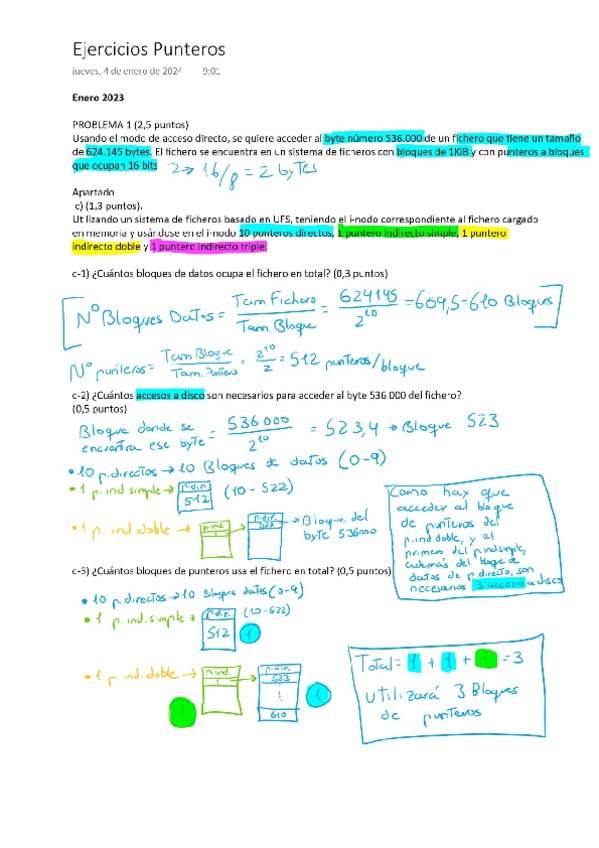 Ejercicios Punteros
jueves, 4 de enero de 2024 9:01
Enero 2023
PROBLEMA 1 (2,5 puntos)
Usando el modo de acceso directo, se quiere acceder al byte número 536.000 de un fichero que tiene un tamaño
de 624.145 bytes. El fichero se encuentra en un sistema de ficheros con bloques de 1KiB y con punteros a bloques
que ocupan 16 bits
2→ 16/8 = 2 bytes
Apartado
c) (1,3 puntos).
Utilizando un sistema de ficheros basado en UFS, teniendo el i-nodo correspondiente al fichero cargado
en memoria y usándose en el i-nodo 10 punteros directos, 1 puntero indirecto simple, 1 puntero
indirecto doble y 1 puntero indirecto triple:
c-1) ¿Cuántos bloques de datos ocupa el fichero en total? (0,3 puntos)
Nº Bloques Datos = Tam. Fichero / Tam. Bloque = 624145 / 2^10 = 609,5 = 610 Bloques
Nº punteros = Tam Bloque / Tam. Puntero = 2^10 / 2 = 512 punteros/bloque
c-2) ¿Cuántos accesos a disco son necesarios para acceder al byte 536 000 del fichero?
(0,5 puntos)
Bloque donde se encuentra ese byte = 536000 / 2^10 = 523,4 → Bloque 523
• 10 p.directos → 10 Bloques de datos (0-9)
• 1 p. ind simple → p.dir. 512 (10-522)
• 1 p. ind doble → p.ind. 1 → p.dir. 523 → Bloque del
byte 536000
Como hay que
acceder al bloque
de punteros del
p.ind.doble, y al
primero del p.indsimple,
además del bloque de
datos de p.directo, son
necesarios 3 accesos a disco
c-3) ¿Cuántos bloques de punteros usa el fichero en total? (0,5 puntos)
• 10 p.directos → 10 Bloques datos (0-9)
• 1 p. ind. simple → p.dir. 512 (10-522)
1
• 1 p. ind doble → p.ind. 1 → p.dir. 523
⋮
610
1
1
Total = 1 + 1 + 1 = 3
utilizará 3 Bloques
de punteros